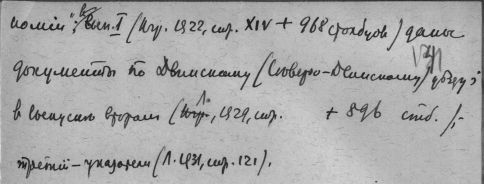 номии", Вып. I (Пгр. 1922, стр. XIV + 968 столбцов) даны
документы по Двинскому (Северо-Двинскому) уезду;
в выпуске втором (Л., 1929, стр. + 896 стб.);
третий – указатели (Л. 1931, стр. 121).